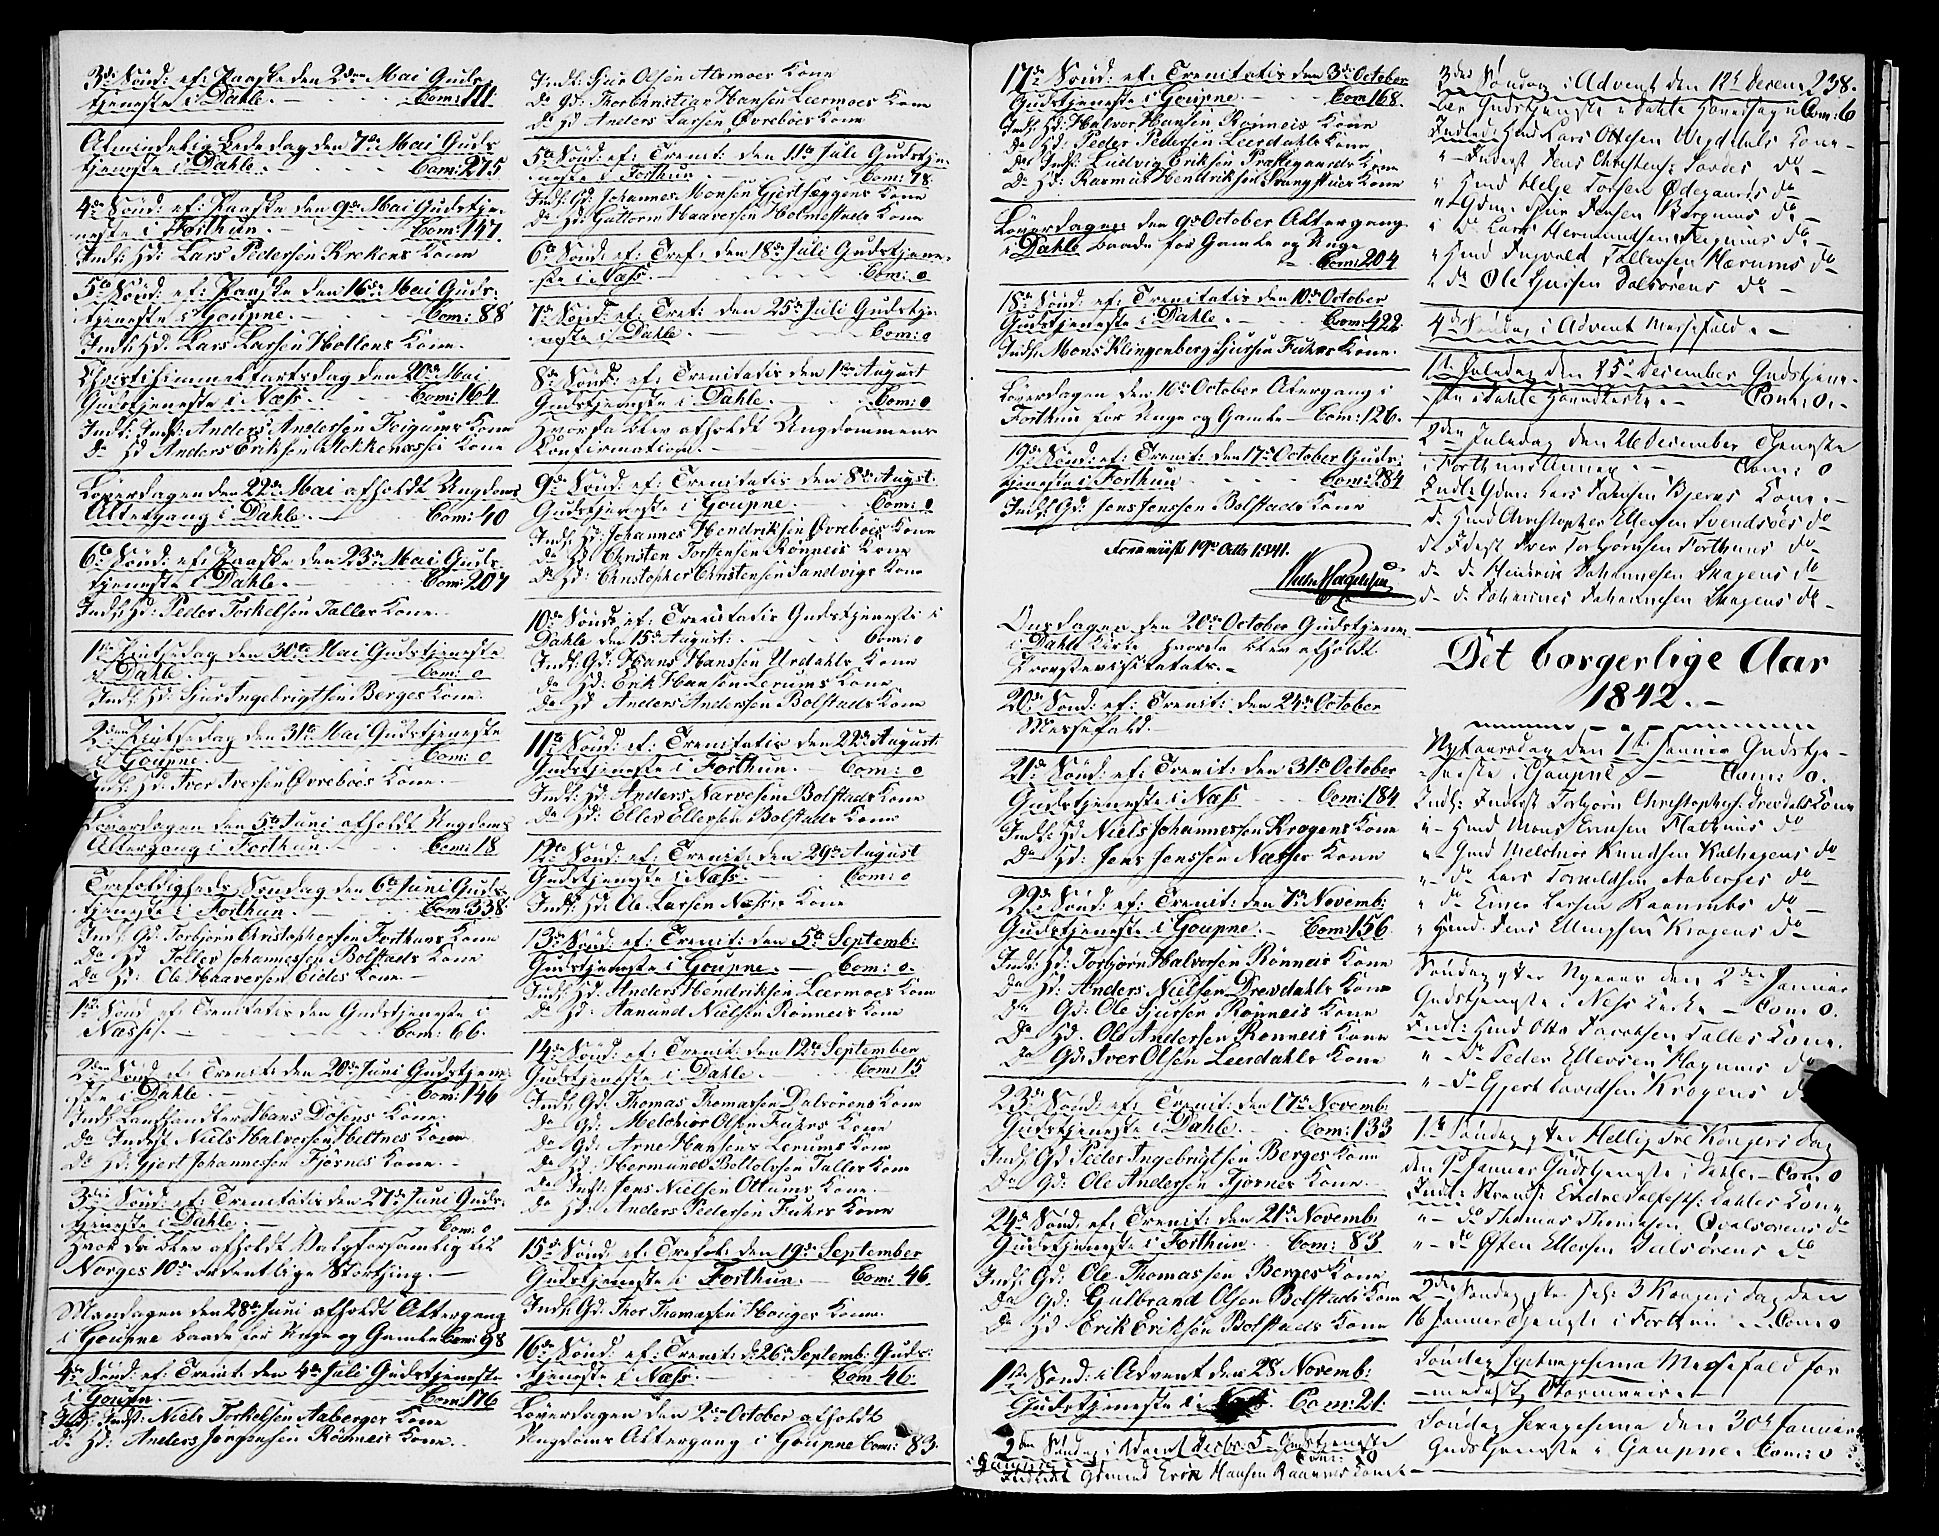 3die Sönd: ef: Paaske den 2den Mai Guds
tjeneste i Dahle. Com: 111.
Almindelig Bededag den 7de Mai Guds
tjeneste i Dahle. Com: 275
4de Sönd: ef: Paaske den 9de Mai Gudstje-
neste i Forthun. Com: 147.
Indl: Hd: Lars Pedersen Krekens Kone
5te Sönd: ef: Paaske den 16de Mai Guds-
tjeneste i Goupne. Com: 88
Indl: Hd: Lars Larsen Holtens Kone.
Christihimmelfartsdag den 20de Mai
Gudstjeneste i Næss. Com: 164.
Indl: Indst: Anders Andersen Feigums Kone
Do Hd Anders Eriksen Kone
Löverdagen den 22de Mai afholdt Ungdoms
Altergang i Dahle. Com: 40
6te Sönd: ef: Paaske den 23de Mai Guds
tjeneste i Dahle. Com: 207
Indl: Hd: Peder Torkelsen Talles Kone.
1ste Pintsedag den 30te Mai Gudstjeneste
i Dahle. Com: 0
Indl: Hd: Sjur Ingebrigtsen Berges Kone.
2den Pintsedag den 31te Mai Gudstjeneste
i Goupne. Com: 0
Indl: Hd: Iver Iversen Øvreboes Kone.
Löverdagen den 5te Juni afholdt Ungdoms
Altergang i Forthun. Com: 18
Trefoldigheds Söndag den 6te Juni Guds-
tjeneste i Forthun. Com: 338
Indl: Gd: Torbjörn Christophersen Forthuns Kone
Do Hd: Tolles Johannessen Bolstads Kone
Do Hd: Ole Haaversen Eides Kone.
1ste Sönd ef Trenitatis den Gudstjeneste i
Næss. Com: 66.
2den Sönd ef Trenit: den 20de Juni Gudstjene-
ste i Dahle Com: 146
Indl: Landhandler Hans Dösens Kone.
Do Indst Niels Halvorsen Heltnes Kone
Do Hd: Gjert Johannessen Fjösnes Kone.
3die Sönd: ef: Trenitatis den 27de Juni Guds-
tjeneste i Dahle. Com: 0
Hvor da blev afholdt Valgforsamling til
Norges 10de ordentlige Storthing.
Mandagen den 28de Juni afholdt Altergang
i Goupne baade for Unge og Gamle Com: 98
4de Sönd: ef: Trenit: den 4de Juli Gudstjeneste
i Goupn. Com: 176
Indl: Indst: Niels Torkelsen Aaberges Kone
Do Hd: Anders Jørgensen Rönneis Kone.
Indl: Sjur Olsen Alsmoes Kone
Do Gd: Thor Christian Hansen Leermoes Kone
Do Hd Anders Larsen Øvreboes Kone
5te Sönd: ef: Trenit: den 11te Juli Gudstje-
neste i Forthun. Com: 78.
Indl: Gd: Johannes Monsen Gjertsæggens Kone
Do Hd: Guttorm Haaversen Holmestads Kone
6te Sönd: ef: Tref: den 18de Juli Gudstjene-
ste i Næss. Com: 0
7de Sönd: ef: Tref: den 25de Juli Gudstje-
neste i Dahle. Com: 0
8de Sönd: ef: Trenitatis den 1ste August
Gudstjeneste i Dahle. Com: 0
Hvorpaa blev afholdt Ungdommens
Confirmation.
9de Sönd: ef: Trenitatis den 8de August.
Gudstjeneste i Goupne. Com: 0
Indl: Hd: Johannes Hendriksen Øvreboes Kone
Do Hd: Christen Torstensen Rönneis Kone
Do Hd: Christopher Christensen Sandvigs Kone
10de Sönd: ef: Trenitatis Gudstjeneste i
Dahle den 15de August: Com: 0
Indl: Gd: Hans Hanssen Urdahls Kone
Do Hd: Erik Hansen Lerums Kone
Do Hd Anders Andersen Bolstads Kone
11te Sönd: ef: Trenitatis den 22de August:
Gudstjeneste i Forthun. Com: 0
Indl: Hd: Anders Narvesen Bolstads Kone
Do Hd: Elles Ellersen Bolstads Kone
12te Sönd: ef: Trenit: den 29de August
Gudstjeneste i Næss. Com: 0
Indl: Hd: Ole Larsen Næsses Kone
13de Sönd: ef: Trenit: den 5te Septemb:
Gudstjeneste i Goupne. Com: 0.
Indl: Hd: Anders Hendriksen Leermoes Kone
Do Hd: Aanund Nielsen Rönneis Kone
14de Sönd: ef: Trenit: den 12te September
Gudstjeneste i Dahle. Com: 15
Indl: Gd: Thomas Thomassen Dalsörens Kone
Do Gd: Melchior Olsen Fuhrs Kone
Do Gd: Arne Hansens Lerums Kone
Do Hd: Hermund Bottolvsen Talles Kone
Do Indst: Jens Nielsen Ottums Kone.
Do Hd: Anders Pedersen Fuhrs Kone
15de Sönd: ef: Trefol: den 19de September
Gudstjeneste i Forthun. Com: 46.
Indl: Gd: Thor Thomassen Houges Kone.
16de Sönd: ef: Trenit: d: 26de Septemb: Guds:
tjeneste i Næss. Com 46.
Löverdagen den 2den October afholdt
Ungdoms Altergang i Goupne Com: 83.
17de Sönd: ef: Trenitatis den 3die October
Gudstjeneste i Goupne. Com 168.
Indl: Hd: Halvor Hansen Rönneis Kone
Do Hd: Peder Pedersen Leerdahls Kone
Do Indst: Ludvig Eriksen Præstegaards Kone
Do Hd: Rasmus Hendriksen Kone
Löverdagen den 9de October Altergang
i Dahle baade for Gamle og Unge
Com: 204
18de Sönd: ef: Trenitatis den 10de October
Gudstjeneste i Dahle. Com: 422.
Indl: Mons Klingenberg Sjursen Fuhrs Kone.
Löverdagen den 16de October Altergang i
Forthun for Unge og Gamle Com: 126.
19de Sönd: ef: Trenit: den 17de October Guds:
tjeneste i Forthun Com: 284
Indl: Gd: Jens Jenssen Bolstads Kone
19de Octb 1841.
Onsdagen den 20de October Gudstjene-
i Dahle Kirke hvorda blev afholdt
20de Sönd: ef: Trenit: den 24de October
Messefald.
21de Sönd: ef: Trenit: den 31te October
Gudstjeneste i Næss Com: 184.
Indl: Hd Niels Johannessen Krogens Kone
Do Hd: Jens Jenssen Næsses Kone
22de Sönd: ef: Trenit: den 7de Novemb:
Gudstjeneste i Goupne. Com: 156.
Indl: Hd: Torbjørn Halvorsen Rönneis Kone
Do Hd: Anders Nielsen Dresdahls Kone
Do Gd: Ole Sjursen Rönneis Kone
Do Hd. Ole Andersen Rönneis Kone
Do Gd: Iver Olsen Leerdahls Kone
23de Sönd: ef: Trenit: den 17de Novemb:
Gudstjeneste i Dahle. Com: 133
Indl: Gd Peder Ingebrigtsen Berges Kone
Do Gd: Ole Andersen Fjösnes Kone
24de Sönd: ef: Trenit: den 21de Novemb:
Gudstjeneste i Forthun. Com: 83
Indl: Gd: Ole Thomassen Berges Kone
Do Gd: Gulbrand Olsen Bolstads Kone
Do Hd Erik Eriksen Bolstads Kone
1ste Sönd: i Advent den 28 Novemb:
Gudstjeneste i Næss. Com: 21.
2den Söndag i Advent Decbr: 5. Gudstjeneste
i Goupne Com: 0
Indledt Gdmand Erik Hansen Raaums Kone
3die Söndag i Advent den 12te Decem- 238.
ber Gudstjeneste i Dahle Hovedsogn Com: 6
Indled: Hmd Lars Ottesen Kone
" Inderst Jens Christens: Sondes do
" Hmd Helge Torsen Ødegaards do
" Gdm. Sjur Jensen Bergums do
" Do Lars Hermundsen Feigums do
" Hmd Ingvald Tollessen Mærums do
" do Ole Sjursen Dalsörens do
4de Söndag i Advent Messefald.
1ste Juledag den 25de December Gudstjene-
ste i Dahle Hovedkirke. Com: 0.
2den Juledag den 26 December Tjeneste
i Forthuns Annex. Com: 0
Indl: Gdm: Lars Johnsen Bjerns Kone.
do Hmd Christopher Ellersen Svendsöes do
do Inderst Iver Torbjørnsen Forthuns do
do do Henrik Johannesen Skagens do
do do Johannes Johannesen Skagens do
Det borgerlige Aar
1842.
Nytaarsdag den 1ste Januar Gudstje-
neste i Goupne. Com: 0.
Indl: Inderst Torbjørn Christophers: Dresdals Kone
" Hmd Mons Ericsen Flahuus do
" Gmd Melchior Knudsen Kalhagens do
" do Lars Torkildsen Aaberges do
" do Einar Larsen Raaumbs do
" Hmd: Jens Ellingsen Krogens do
Söndag efter Nyeaar den 2den Januar
Gudstjeneste i Ness Kirke Com: 0.
Indl: Hmd Otto Jacobsen Talles Kone.
" Do Peder Ellersen Hognuus do
" do Gjert Davidsen Krogens do
1ste Söndag efter Hellig Tre Kongers dag
den 9de Januar Gudstjeneste i Dahle Com: 0
Indl: Strands: Endre Tolfests: Dahles Kone
" do Thomas Qvalsorens do
" do Østen Ellersen Dalsørens do
2den Söndag efter hel: 3 Kongers dag den
16 Januar Tjeneste i Forthun Com: 0
Söndag Septuagesima Messefald for
medelst Stormveir.
Söndag Sexagesima den 30te Januar
Gudstjeneste i Goupne. Com: 0